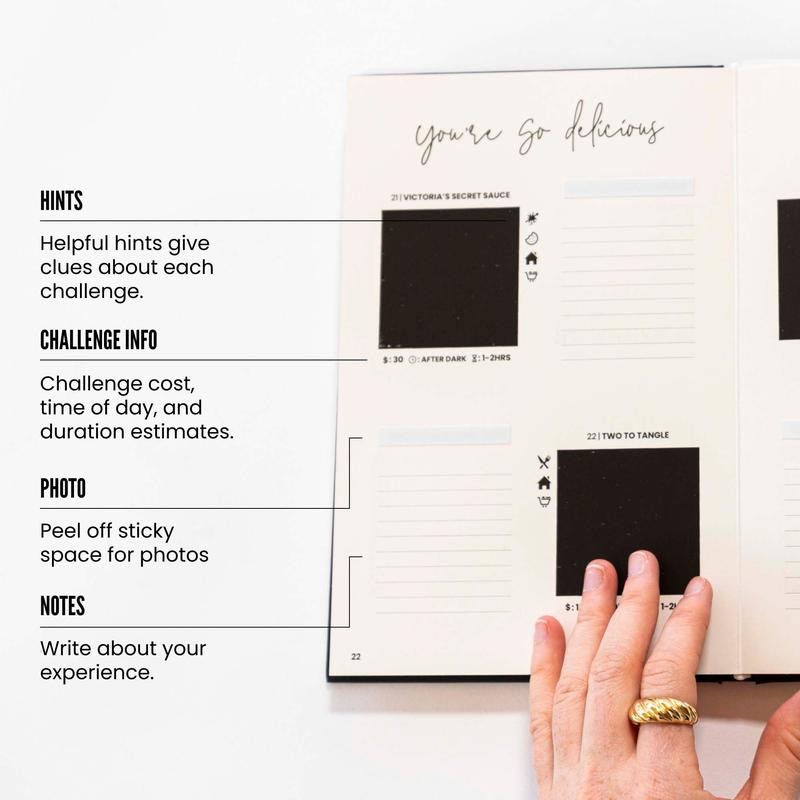 You're So delicious
HINTS
Helpful hints give
clues about each
challenge.
CHALLENGE INFO
Challenge cost,
time of day, and
duration estimates.
PHOTO
Peel off sticky
space for photos
NOTES
Write about your
experience.
21 | VICTORIA'S SECRET SAUCE
$: 30 : AFTER DARK : 1-2HRS
22 | TWO TO TANGLE
$: 1
22